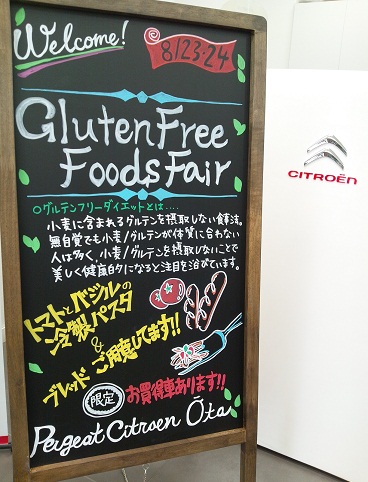 Welcome!
8/23・24
Gluten Free
Foods Fair
○グルテンフリーダイエットとは....
小麦に含まれるグルテンを摂取しない食事法。
無自覚でも小麦/グルテンが体質に合わない
人は多く、小麦/グルテンを摂取しないことで
美しく健康的になると注目を浴びています。
トマトとバジルの
冷製パスタ
&
ブレッド ご用意してます!!
限定 お買得車あります!!
Pergeat Citroen Ōta
CITROËN